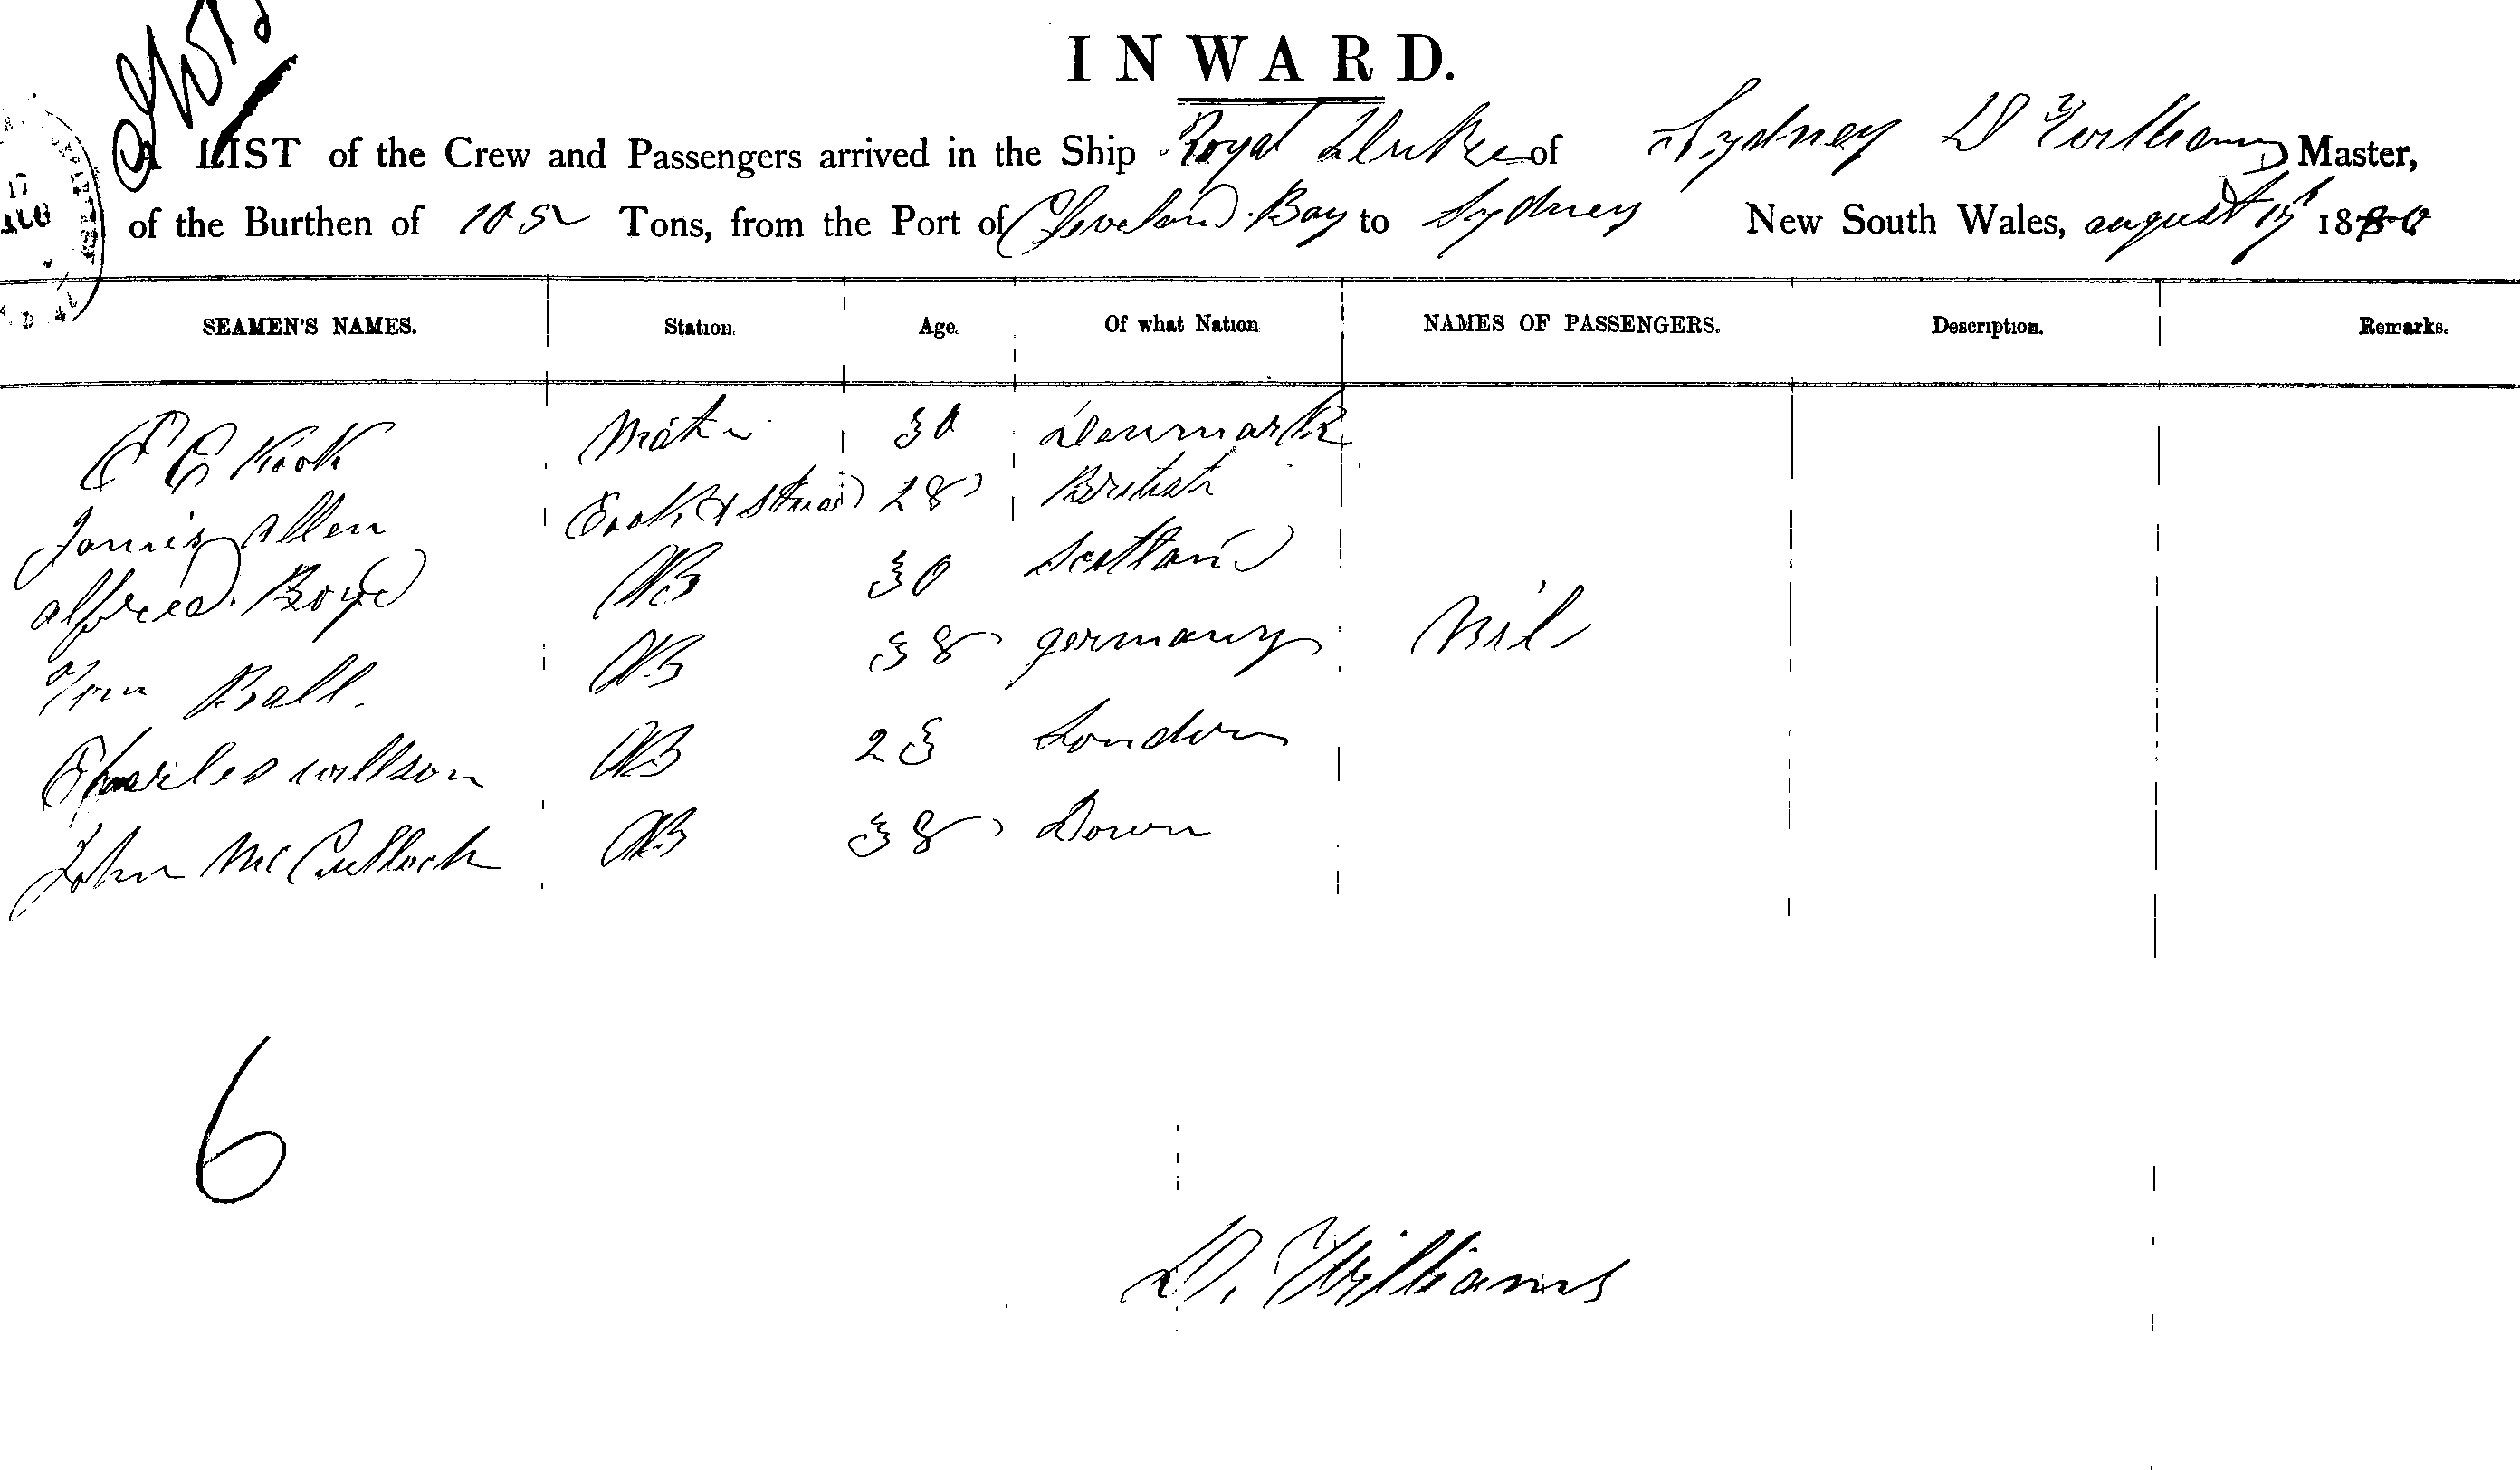 INWARD.
A LIST of the Crew and Passengers arrived in the Ship Royal Duke of Sydney D Williams Master,
of the Burthen of Tons, from the Port of Cleveland Bay to Sydney New South Wales, august 18
SEAMEN'S NAMES. Station. Age. Of what Nation. NAMES OF PASSENGERS. Description. Remarks.
Mate 30 Denmark
James Allen Cook & 28 British
alfred Boyd AB 30 Scotland
Ball. AB 38 germany Nil
Charles willson AB 23 London
John McCulloch AB 38 Down
6
D. Williams
17
AUG